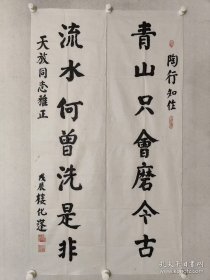 陶行知佳
青山只會磨今古
流水何曾洗是非
天放同志雅正
戊辰 樓化蓬